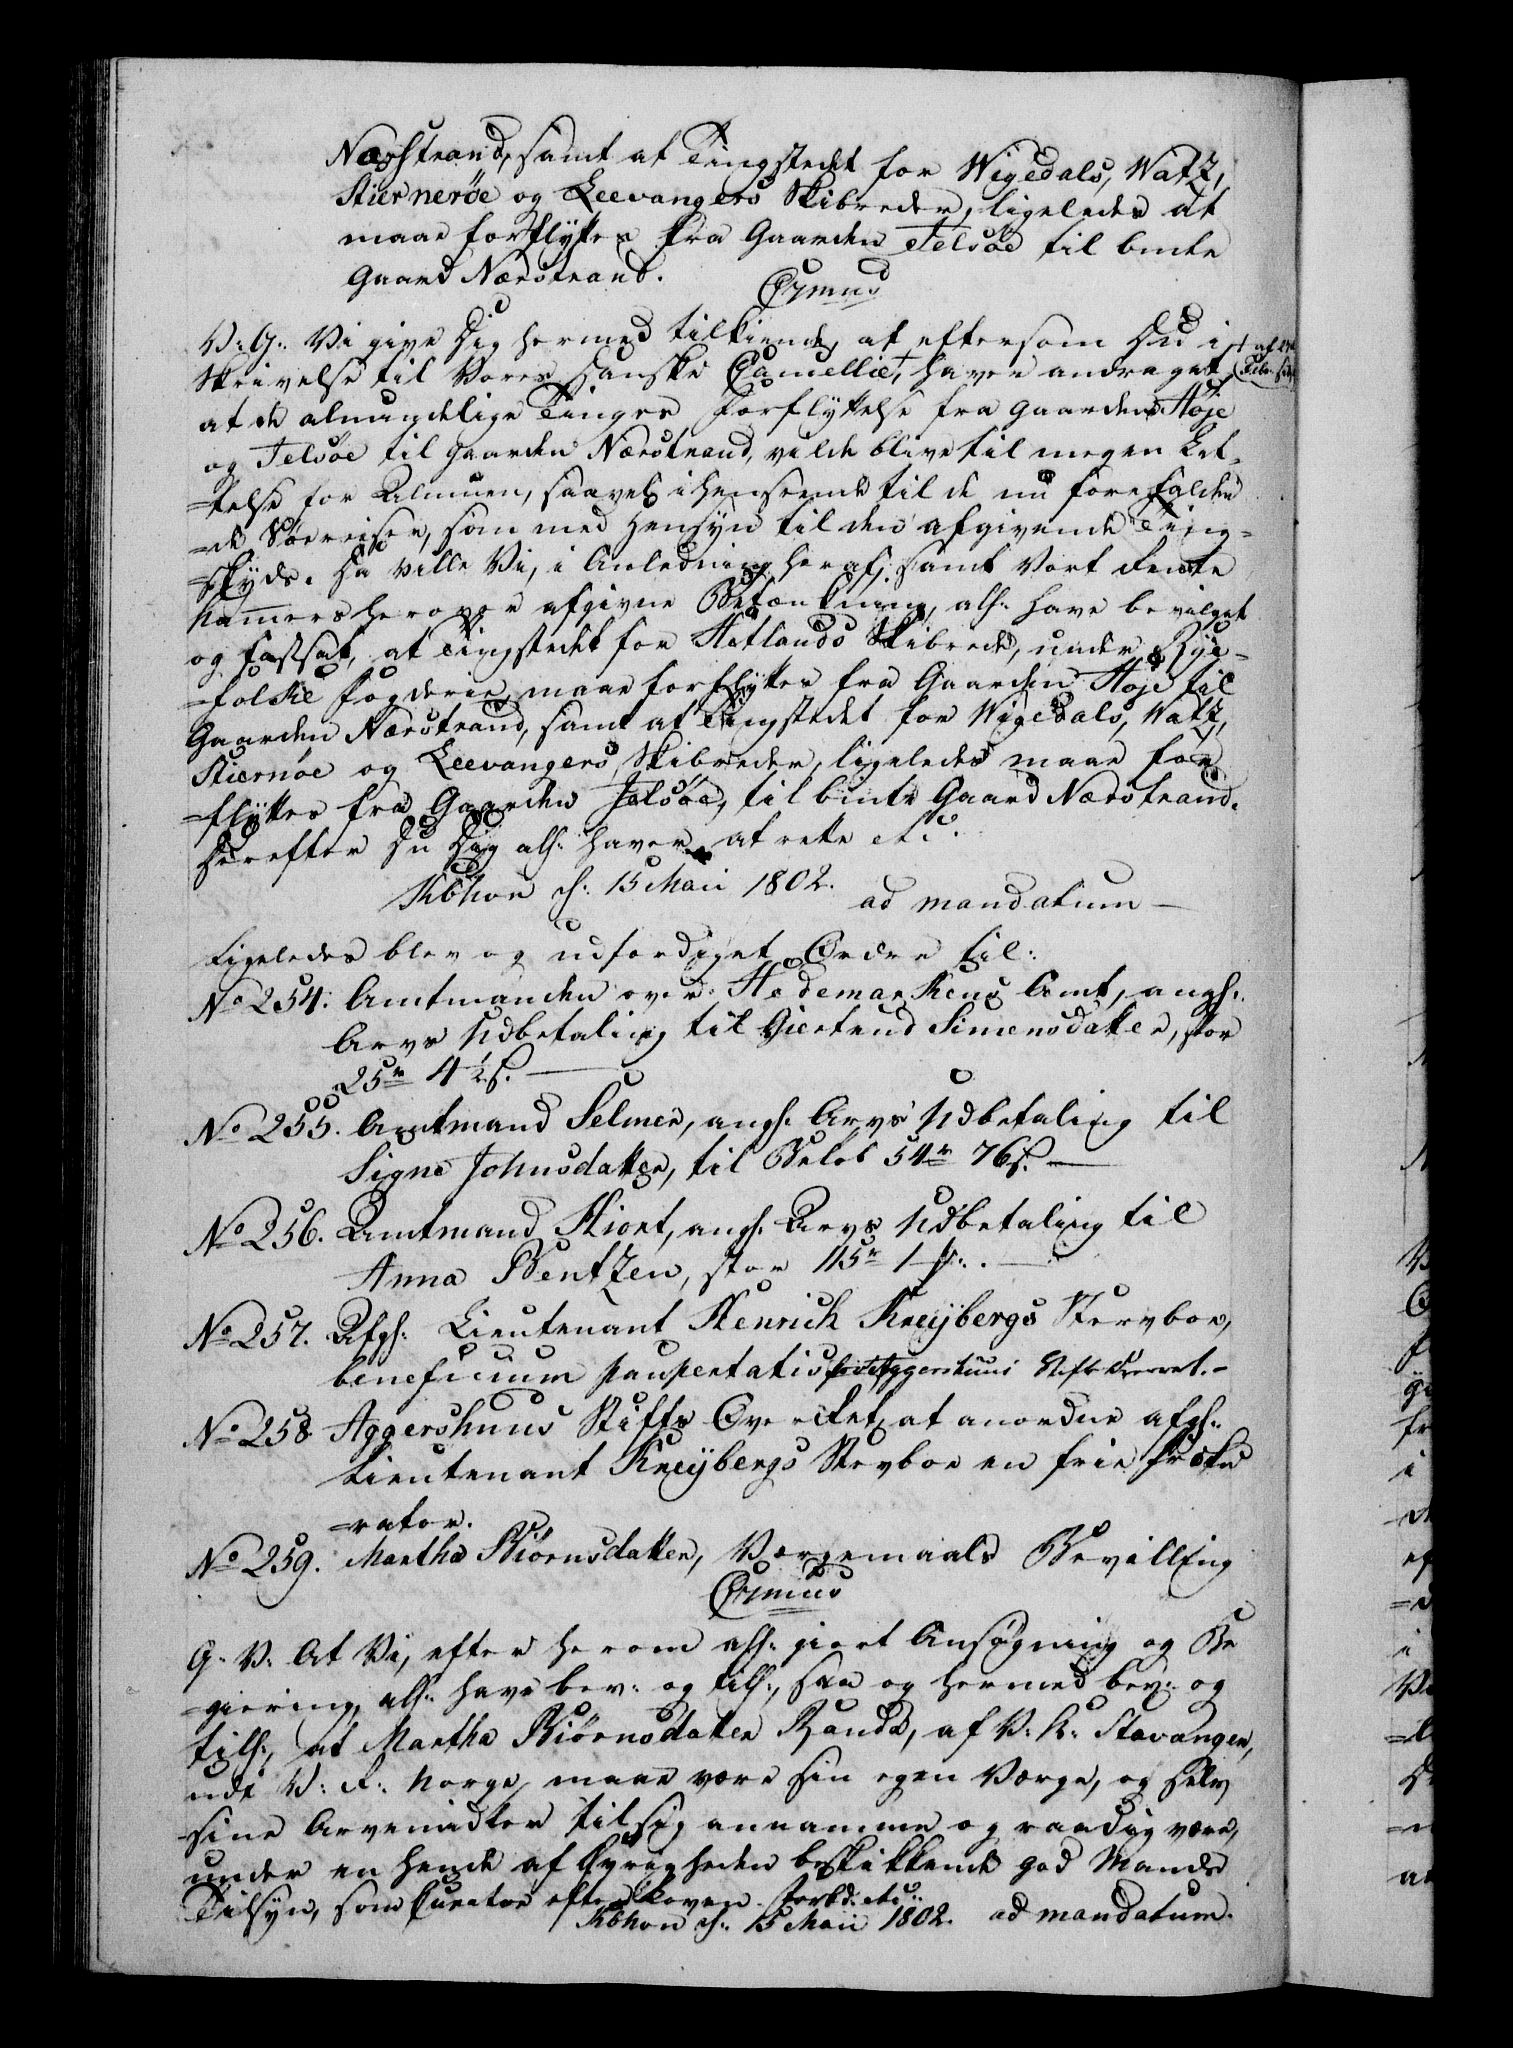 Nærstrand, samt at Tingstedet for Wigedals, Watz,
Stiernerøe og Leevangers Skibreder, ligeledes at
maae forflyttes fra Gaarden Jelsøe til bmte
Gaard Nærstrand.
Cgmus
V: G: Vi give Dig hermed tilkiende, at eftersom Du i
Skrivelse til Vores Danske Cancellie, haver andraget
at de almindelige Tinges Forflyttelse fra Gaarden Høje
og Jelsøe til Gaarden Nærstrand, vilde blive til megen Let-
-telse for Almuen, saavel i Henseende til de nu forefalden
-de Søereiser, som med Hensyn til den afgivende Ting-
-skyds. Så ville Vi, i Anledning heraf, samt Vort Rente
Kammers herover afgivne Betænkning, alh: have bevilget
og fastsat, at Tingstedet for Hetlands Skibrede, under Rye-
-folke Fogderie, maae forflyttes fra Gaarden Høje til
Gaarden Nærstrand, samt at Tingstedet for Wigedals, Watz,
Stiernøe og Leevangers Skibreder, ligeledes maae for
-flyttes fra Gaarden Jelsøe, til bmte Gaard Nærstrand.
Herefter Du Dig alh: haver at rette etc.
Kbhvn d: 15 Maii 1802.
ad mandatum
Ligeledes blev og udfærdiget Ordre til:
No 254. Amtmanden over Hedemarkens Amt, angh:
Arvs Udbetaling til Giertrud Simensdatter, stor
25 r 4½ s.
No 255. Amtmand Selmer, angh: Arvs Udbetaling til
Signe Johnsdatter, til Beløb 54 r 76 s.
No 256. Amtmand Hiort, angh: Arvs Udbetaling til
Anna Bentzen, stor 115 r 1 s.
No 257. Afgh: Lieutenant Henrich Kreÿbergs Stervboe,
beneficium paupertatis for Aggershuus Stifts Overret.
No 258. Aggershuus Stifts Overret, at anordne afgh:
Lieutenant Kreÿbergs Stervboe en frie Proku
-rator.
No 259. Martha Biørnsdatter, Værgemaals Bevilling
Cgmus
G. V: At Vi, efter herom alh: giort Ansøgning og Be
-giering, alh: have bev: og tilh:, saa og hermed bev: og
tilh:, at Martha Biørnsdatter Rande, af V: K: Stavanger,
udi V: R: Norge, maae være sin egen Værge, og selv
sine Arvemidler til sig annamme og raadig være,
under en hende af Øvrigheden beskikkende god Mands
Tilsyn, som Curator efter Loven. Forbd: etc:
Kbhvn d: 15 Maii 1802. ad mandatum.